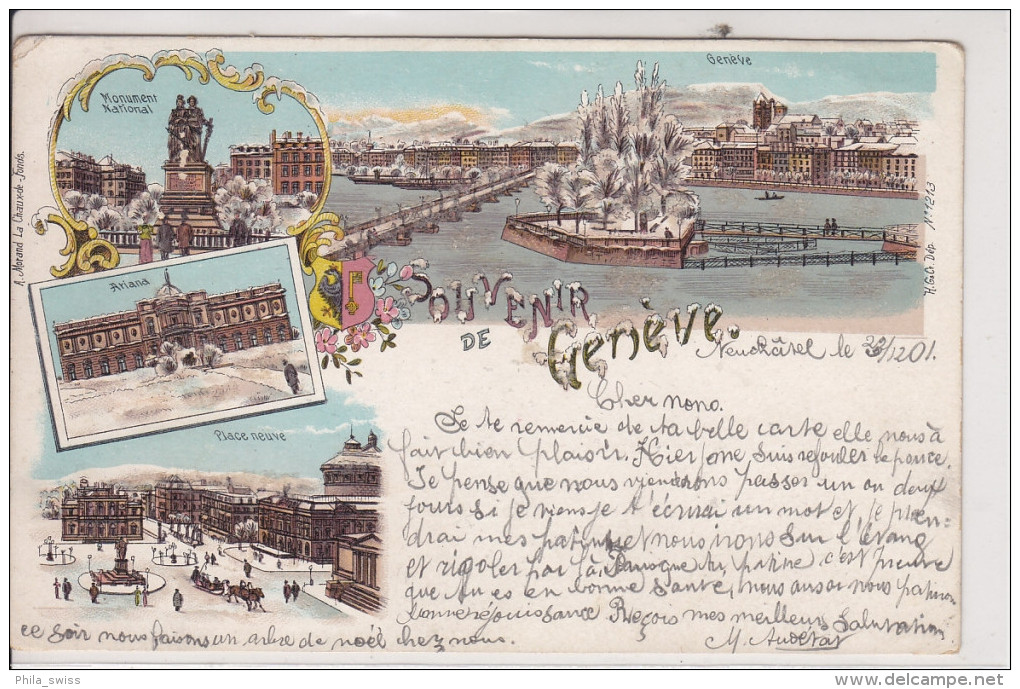 Monument
National
Genève
A. Morand La Chaux-de-Fonds.
H. G. & Co. Dép. No 1213
Ariana
SOUVENIR
DE
Genève.
Place neuve
Neuchâtel le 23/12 01.
Cher nono.
Je te remercie de ta belle carte elle nous à
fait bien plaisir. Hier je me suis refouler le pouce.
Je pense que nous viendrons passer un ou deux
jours si je viens je t'écrirai un mot et je pren-
drai mes patins et nous irons sur l'étang
et rigoler par là. tu patine c'est preuve
que tu es en bonne santé, nous aussi nous patinon
bonne réjouissance Reçois mes meilleurs Salutation
M. Audétat
ce soir nous faisons un arbre de noël chez nous.
Phila_swiss
www.delcampe.net